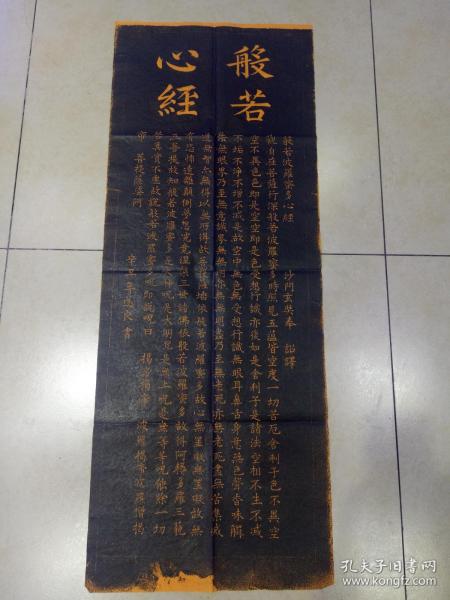 般若
心經
般若波羅蜜多心經　沙門玄奘奉 詔譯
觀自在菩薩行深般若波羅蜜多時照見五蘊皆空度一切苦厄舍利子色不異空
空不異色色即是空空即是色受想行識亦復如是舍利子是諸法空相不生不滅
不垢不淨不增不減是故空中無色無受想行識無眼耳鼻舌身意無色聲香味觸
法無眼界乃至無意識界無無明亦無無明盡乃至無老死亦無老死盡無苦集滅
道無智亦無得以無所得故菩提薩埵依般若波羅蜜多故心無罣礙無罣礙故無
有恐怖遠離顛倒夢想究竟涅槃三世諸佛依般若波羅蜜多故得阿耨多羅三藐
三菩提故知般若波羅蜜多是大神咒是大明咒是無上咒是無等等咒能除一切
苦真實不虛故說般若波羅蜜多咒即說咒曰　揭帝揭帝　波羅揭帝　波羅僧揭
帝　菩提薩婆訶
孔夫子旧书网